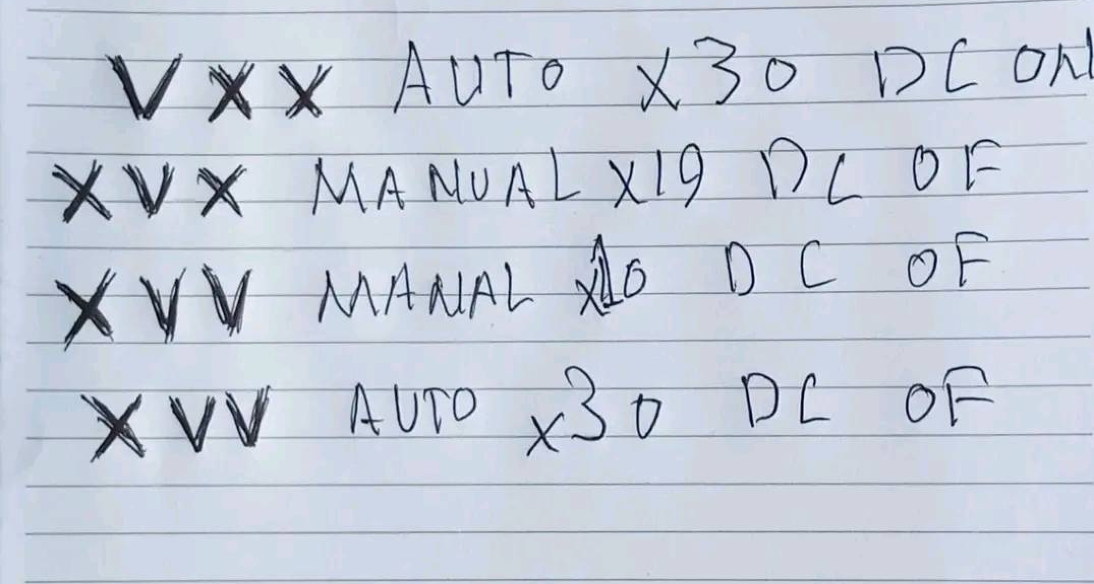 V X X AUTO X30 DC ON
X V X MANUAL X19 DC OF
X V V MANAL X10 DC OF
X V V AUTO X30 DC OF